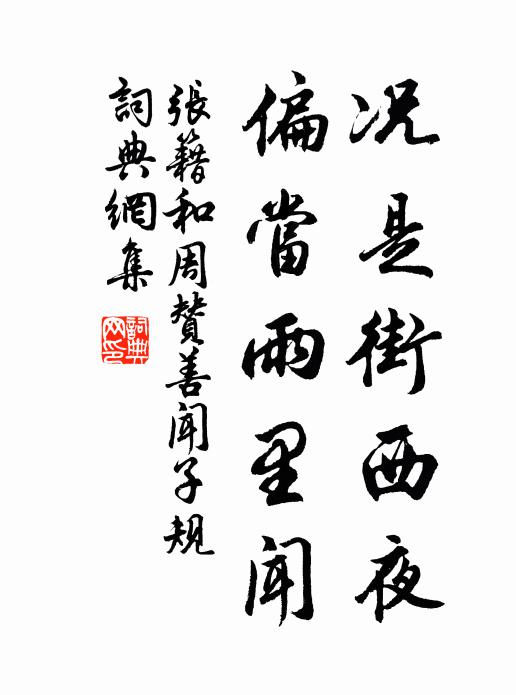 况是街西夜
偏當雨里聞
張籍和周贊善聞子規
詞典網集
詞典
网印